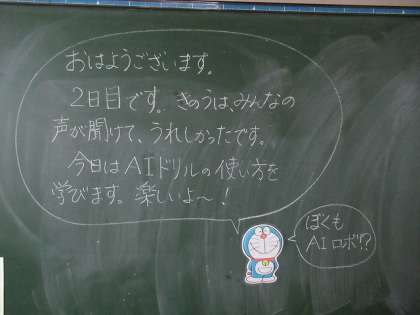 おはようございます。
2日目です。きのうは、みんなの
声が聞けて、うれしかったです。
今日はAIドリルの使い方を
学びます。楽しいよ～！
ぼくも
AIロボ!?